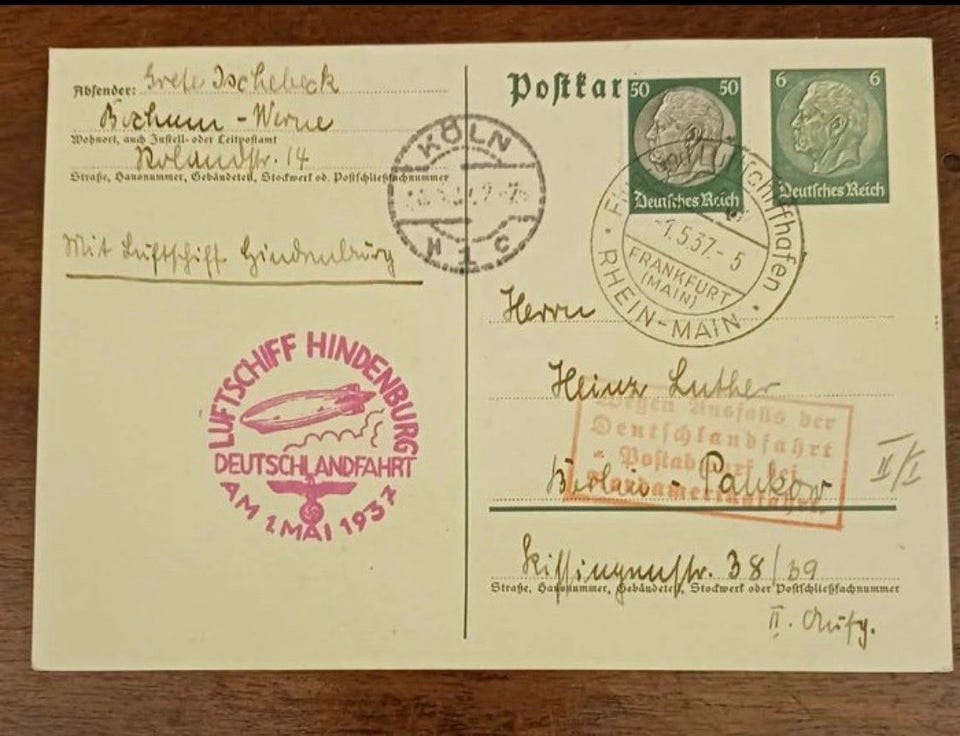 Absender: Grete Tschebeck
Bochum - Werne
Wohnort, auch Zustell- oder Leitpostamt
Rolandstr. 14
Straße, Hausnummer, Gebäudeteil, Stockwerk od. Postschließfachnummer
Mit Luftschiff Hindenburg
KÖLN
H 1 C
LUFTSCHIFF HINDENBURG
DEUTSCHLANDFAHRT
AM 1. MAI 1937
Postkar
50 50
Deutsches Reich
6 6
Deutsches Reich
-1.5.37.- 5
FRANKFURT
(MAIN)
RHEIN-MAIN
Herrn
Heinz Luther
Wegen Ausfalls der
Deutschlandfahrt
Postabwurf bei
Nordamerikafahrt.
Berlin - Pankow
II/I
Kissingenstr. 38/39
Straße, Hausnummer, Gebäudeteil, Stockwerk oder Postschließfachnummer
II. Aufg.